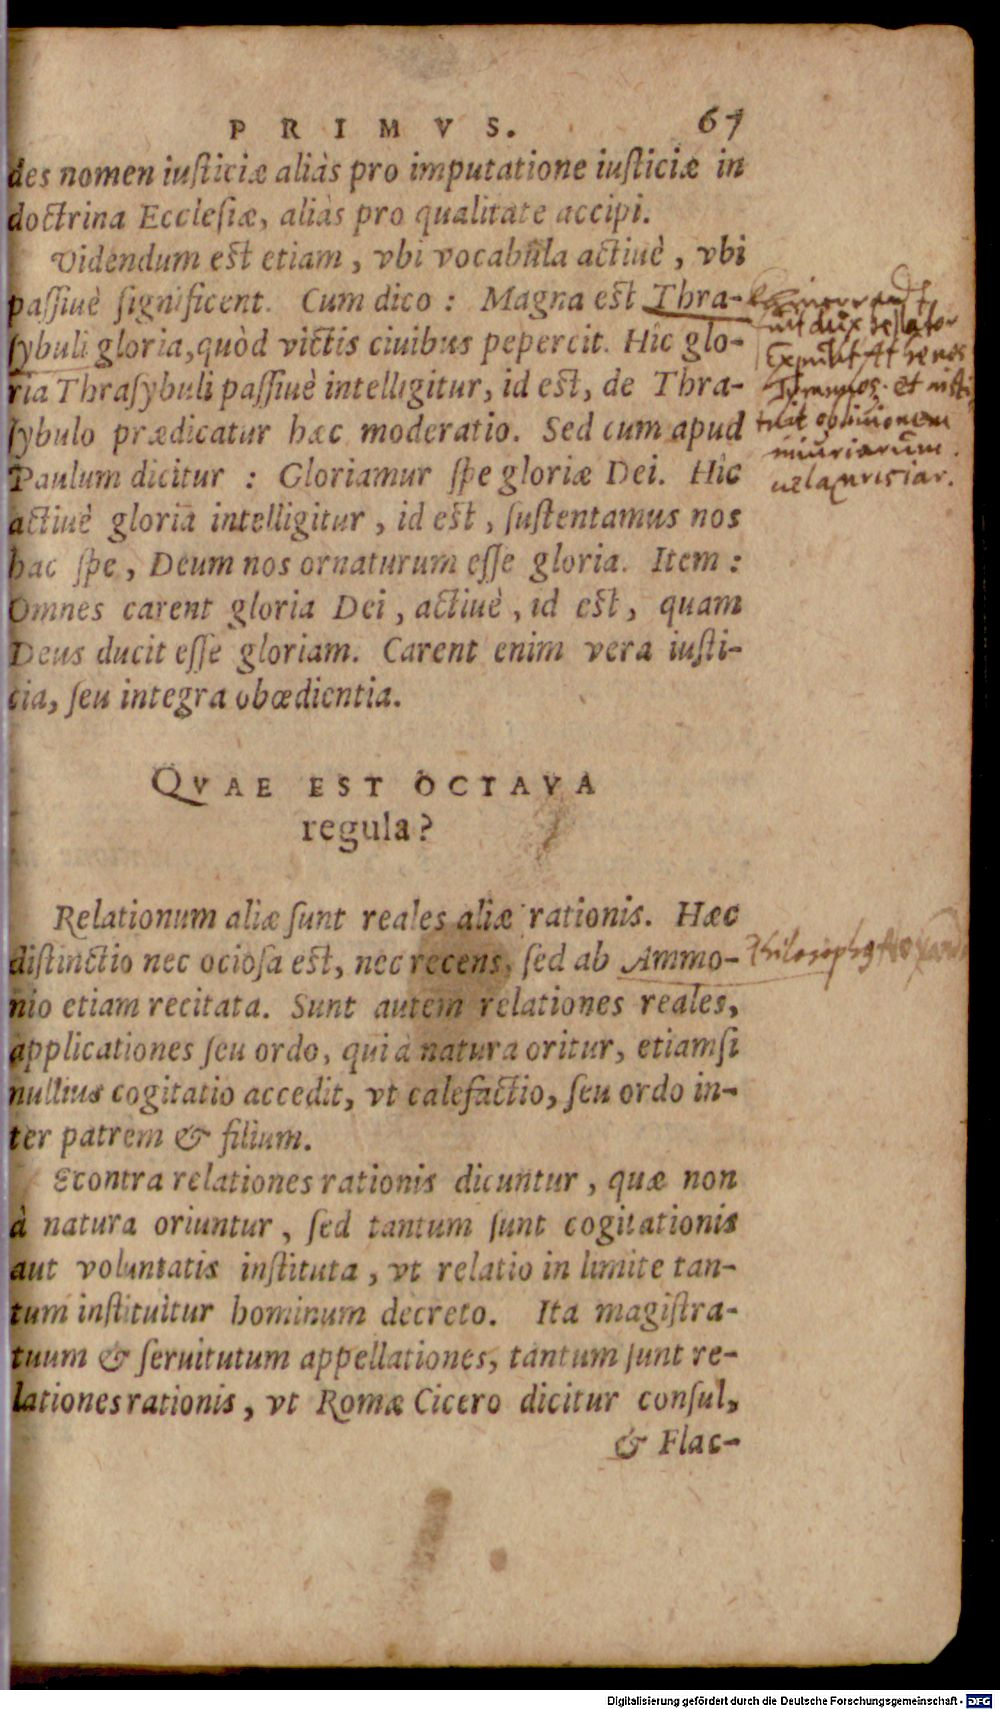 PRIMVS. 67
des nomen iusticiæ aliàs pro imputatione iusticiæ in
doctrina Ecclesiæ, aliàs pro qualitate accipi.
Videndum est etiam, vbi vocabula actiuè, vbi
passiuè significent. Cum dico: Magna est Thra-
sybuli gloria, quòd victis ciuibus pepercit. Hic glo-
ria Thrasybuli passiuè intelligitur, id est, de Thra-
sybulo prædicatur hæc moderatio. Sed cum apud
Paulum dicitur: Gloriamur spe gloriæ Dei. Hic
actiuè gloria intelligitur, id est, sustentamus nos
hac spe, Deum nos ornaturum esse gloria. Item:
Omnes carent gloria Dei, actiuè, id est, quam
Deus ducit esse gloriam. Carent enim vera iusti-
cia, seu integra obœdientia.
QVAE EST OCTAVA
regula?
Relationum aliæ sunt reales aliæ rationis. Hæc
distinctio nec ociosa est, nec recens, sed ab Ammo-
nio etiam recitata. Sunt autem relationes reales,
applicationes seu ordo, qui à natura oritur, etiamsi
nullius cogitatio accedit, vt calefactio, seu ordo in-
ter patrem & filium.
Econtra relationes rationis dicuntur, quæ non
à natura oriuntur, sed tantum sunt cogitationis
aut voluntatis instituta, vt relatio in limite tan-
tum instituitur hominum decreto. Ita magistra-
tuum & seruitutum appellationes, tantum sunt re-
lationes rationis, vt Romæ Cicero dicitur consul,
& Flac-
fuit dux
et
iniuriarum
Digitalisierung gefördert durch die Deutsche Forschungsgemeinschaft - DFG